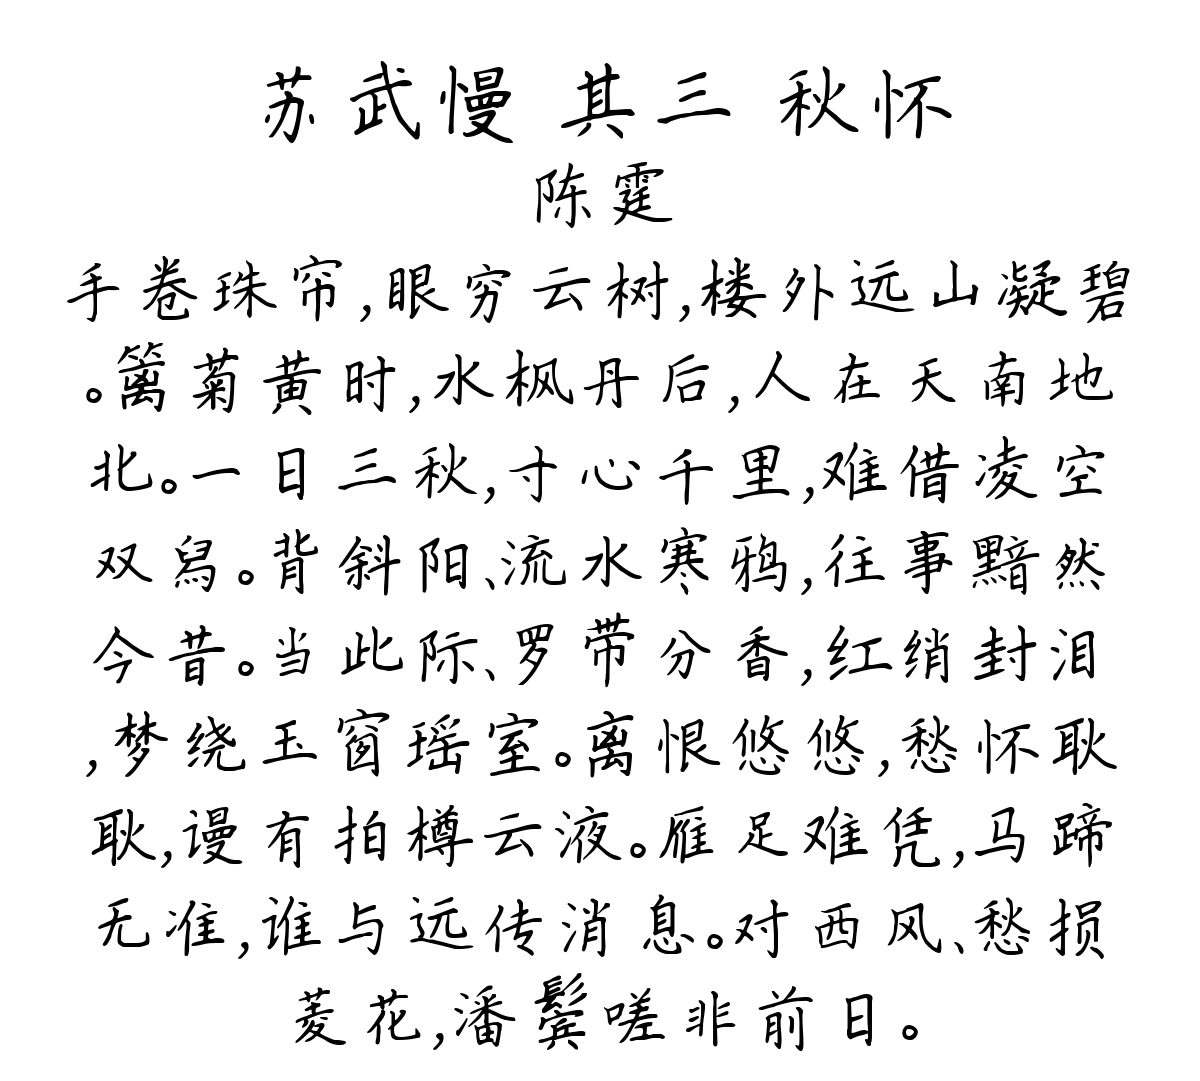 苏武慢 其三 秋怀
陈霆
手卷珠帘,眼穷云树,楼外远山凝碧
。篱菊黄时,水枫丹后,人在天南地
北。一日三秋,寸心千里,难借凌空
双舄。背斜阳、流水寒鸦,往事黯然
今昔。当此际、罗带分香,红绡封泪
,梦绕玉窗瑶室。离恨悠悠,愁怀耿
耿,谩有拍樽云液。雁足难凭,马蹄
无准,谁与远传消息。对西风、愁损
菱花,潘鬓嗟非前日。